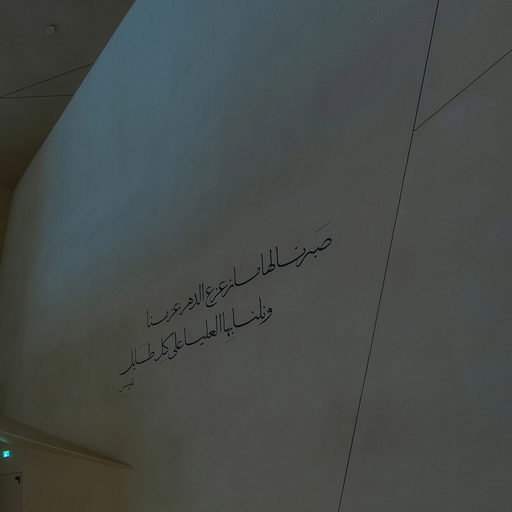 صَبرنا لها ما زعزع الدهر عزمنا
ونلنا بها العليا على كل طايل